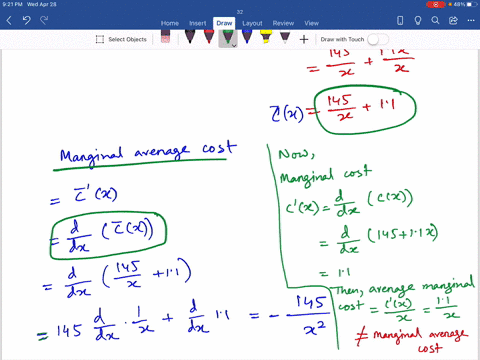 9:21 PM Wed Apr 28
48%
32
Home Insert Draw Layout Review View
Select Objects
Draw with Touch
= 145/x + 1.1x/x
C̄(x) = 145/x + 1.1
Marginal average cost
= C̄'(x)
= d/dx (C̄(x))
= d/dx (145/x + 1.1)
= 145 d/dx · 1/x + d/dx 1.1 = - 145/x²
Now,
Marginal cost
C'(x) = d/dx (C(x))
= d/dx (145+1.1x)
= 1.1
Then, average marginal
cost = C'(x)/x = 1.1/x
≠ marginal average
cost